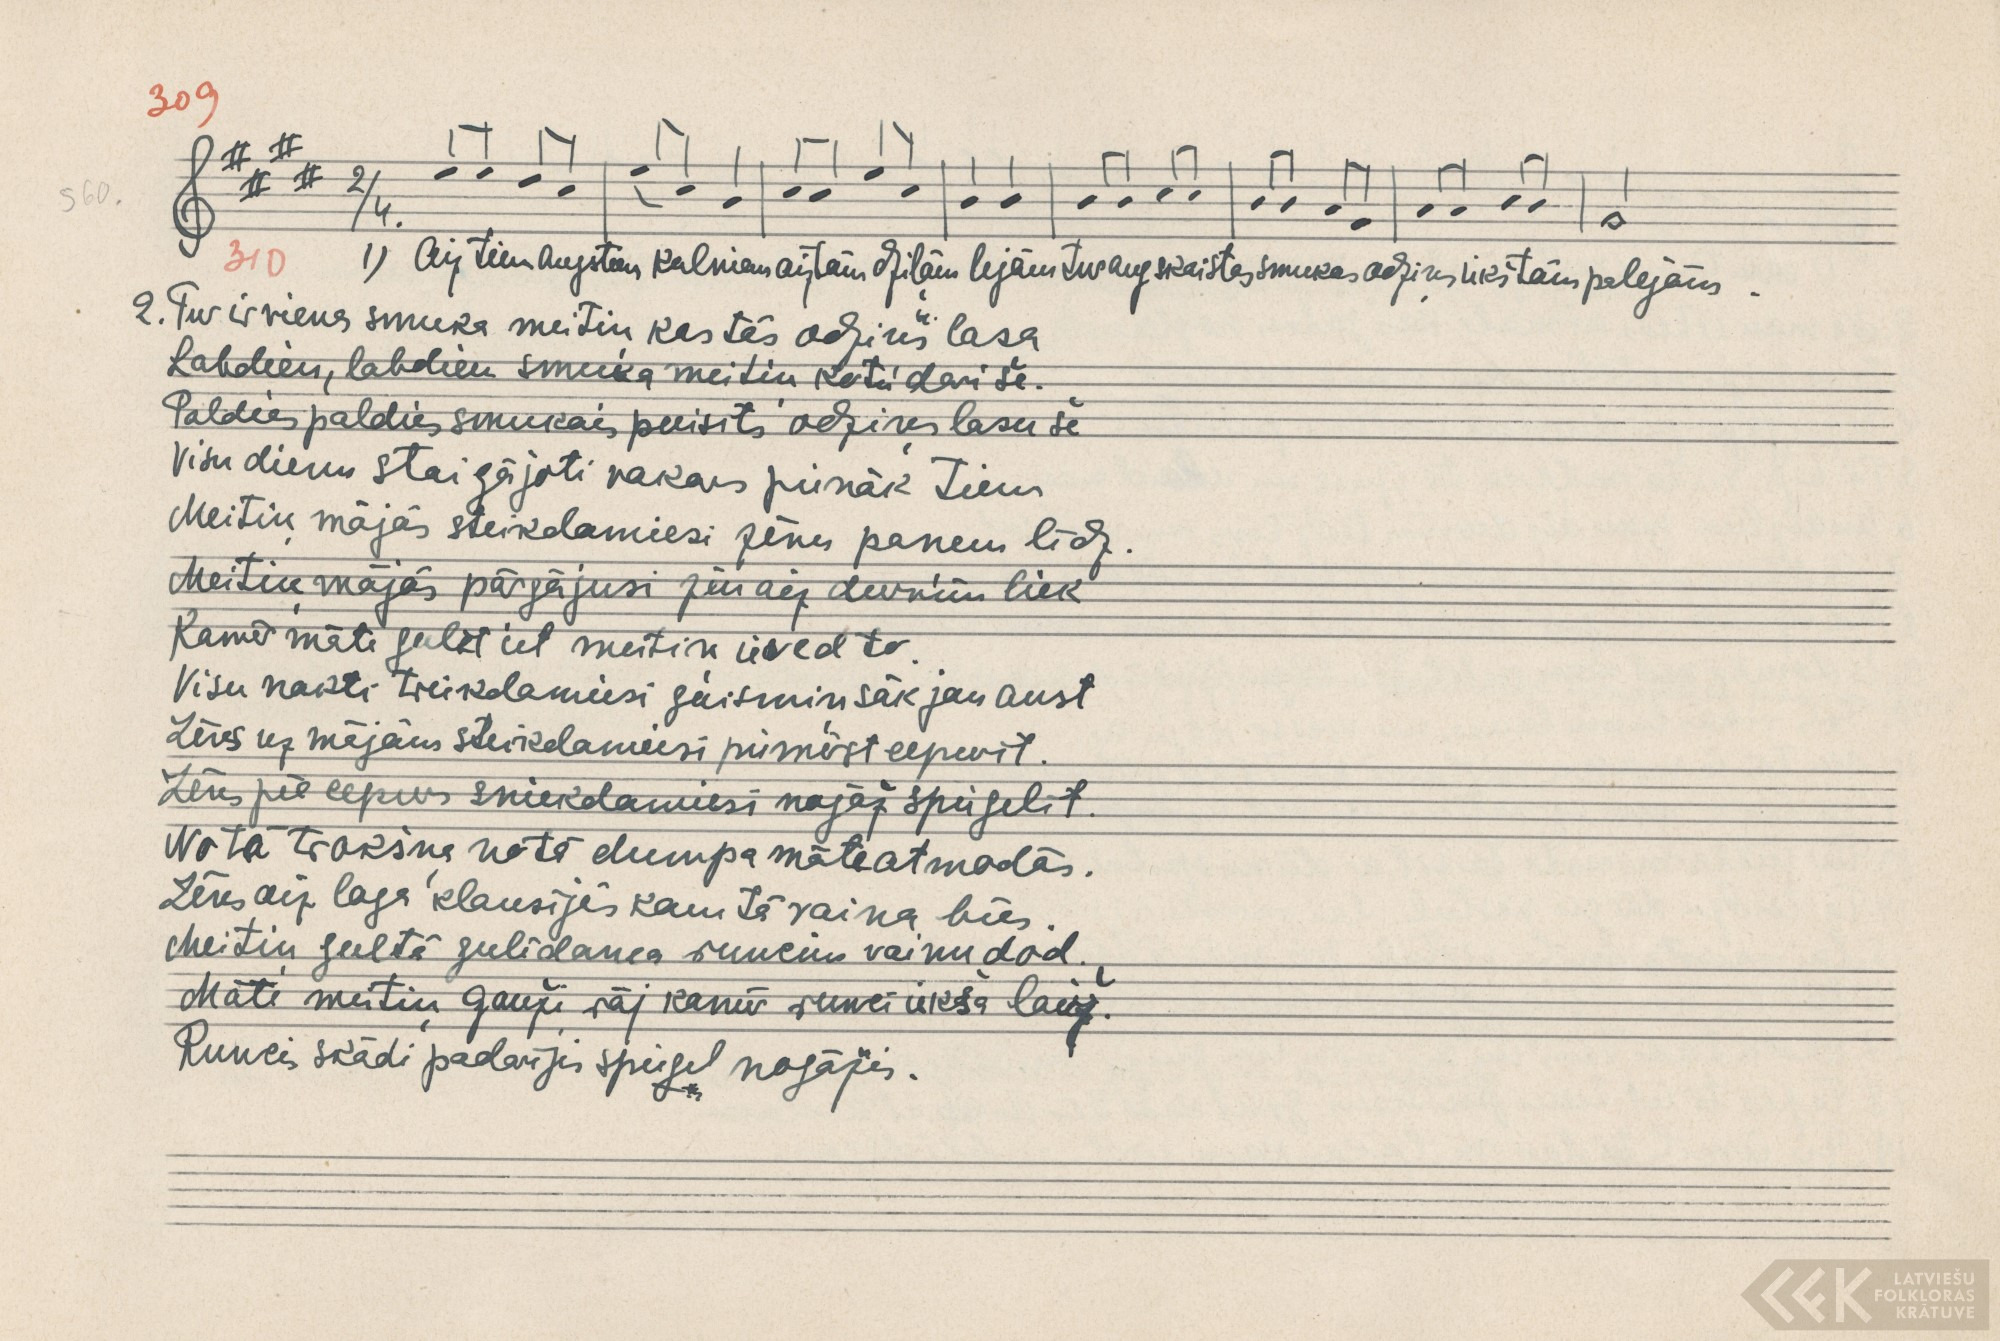 309
560.
2/4.
310
1) Aiz tiem augstam kalniem aiztām dzilām lejām tur aug skaistas smukas odziņs iikš tām palejām.
2. Tur ir viena smuka meitiņ kas tās odziņš lasa
Labdien, labdien smuka meitiņ kotu dari še.
Paldies paldies smukais puisīt' odziņs lasu še
Visu dienu staigājoti vakars pienāk tiem
Meitiņ mājās steikdamiesi zēnu paņem līdz.
Meitiņ mājās pārgājusi zēn aiz durvim liek
Kamēr māte gulēt iet meitiņ ieved to.
Visu nakti treikdamiesi gaismiņ sāk jau aust
Zēns uz mājām steikdamiesi piemirst cepurīt.
Zēns pēc cepurs sniekdamiesi nogāž spiegelīt.
No tā trokšņa no tā dumpa māte atmodās.
Zēns aiz loga klausījās kam tā vaina būs.
Meitiņ gultā gulēdama runcim vainu dod.
Māte meitiņ gauži rāj kamēr runci iekšā laiž.
Runcis skādi padarījis spiegel nogāzis.
LATVIEŠU
FOLKLORAS
KRĀTUVE